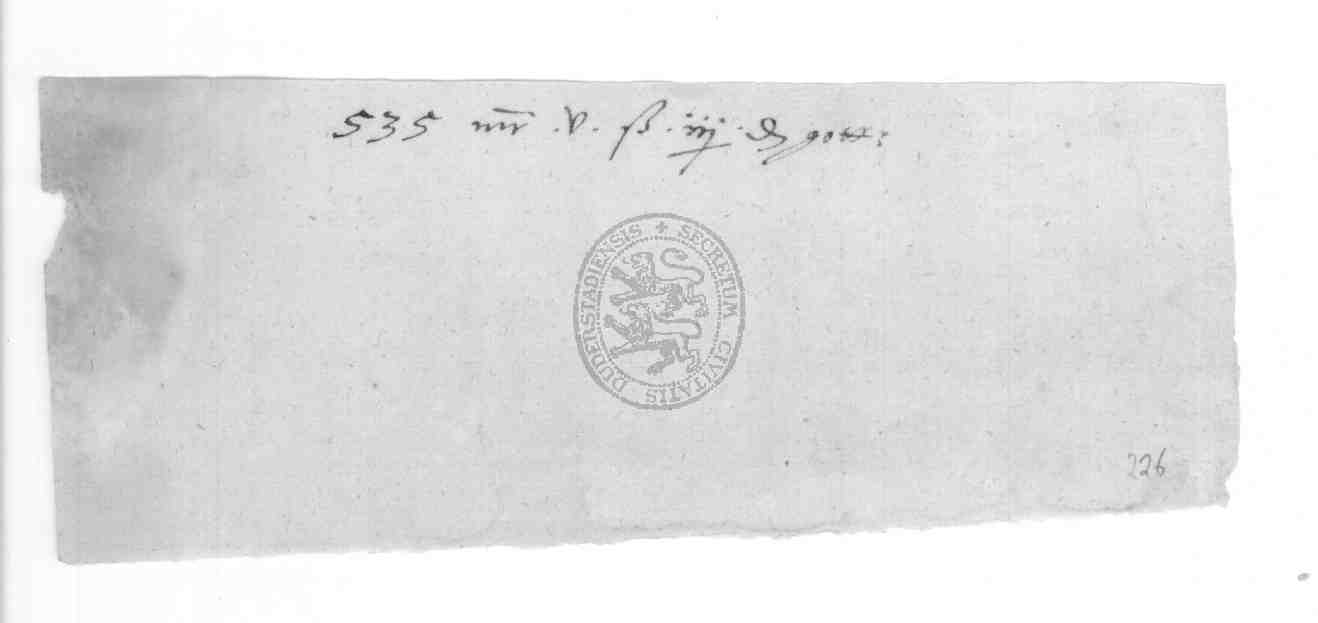 535 mr̄ .v. ß .iiij. ₰ gott:
SECRETUM CIVITATIS DUDERSTADIENSIS
226